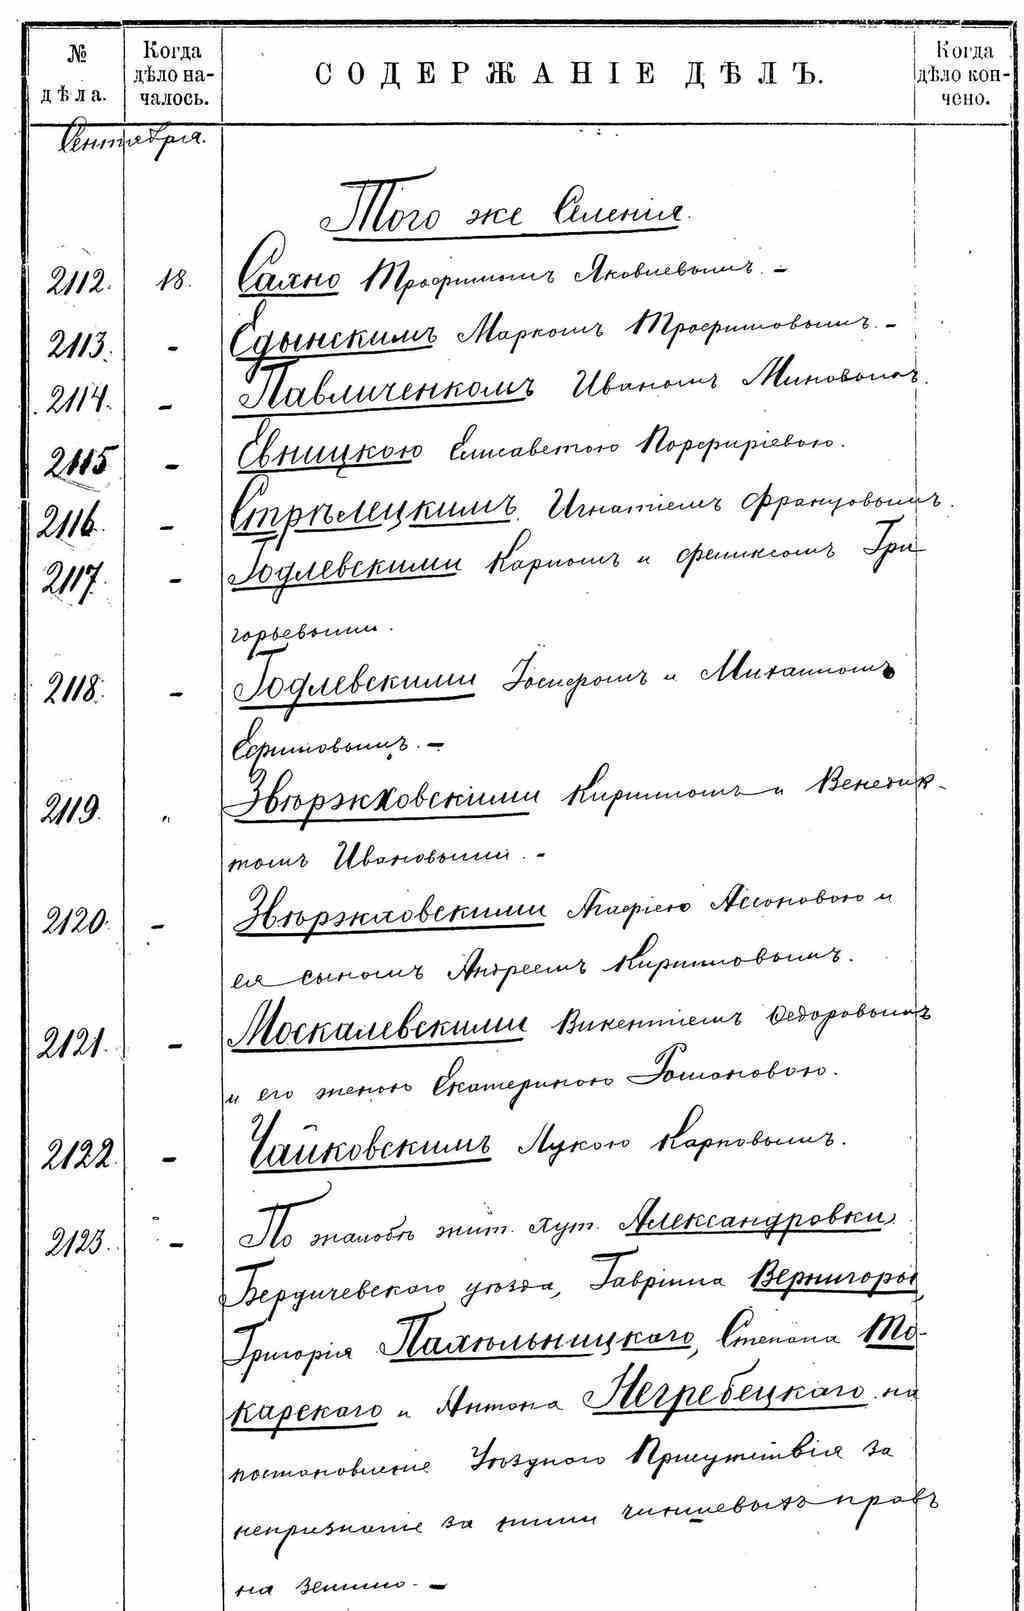 № дѣла. Когда дѣло началось. СОДЕРЖАНІЕ ДѢЛЪ. Когда дѣло кончено.
Сентября.
Того же Селенія.
2112. 18. Сахно Трофимомъ Яковлевымъ. -
2113. - Едынскимъ Маркомъ Трофимовымъ. -
2114. - Павличенкомъ Иваномъ Миновымъ.
2115 - Евницкою Елисаветою Порфиріевою.
2116. - Стрѣлецкимъ Игнатіемъ Францовымъ.
2117. - Годлевскими Карпомъ и Феликсомъ Гри
горьевыми.
2118. - Годлевскими Іосифомъ и Михаиломъ
Ефимовымъ. -
2119. " Звѣржховскими Кирилломъ и Венедик-
томъ Ивановыми. -
2120. - Звѣржховскими Агафіею Ассоновою и
ея сыномъ Андреемъ Кирилловымъ.
2121. - Москалевскими Викентіемъ Федоровымъ
и его женою Екатериною Романовою.
2122. - Чайковскимъ Лукою Карповымъ.
2123. - По жалобѣ жит. хут. Александровки,
Бердичевского уѣзда, Гавріила Вернигоры,
Григорія Пахольницкого, Степана То-
карского и Антона Негребецкого на
постановленіе Уѣздного Присутствія за
непризнаніе за ними чиншевыхъ правъ
на землю. -